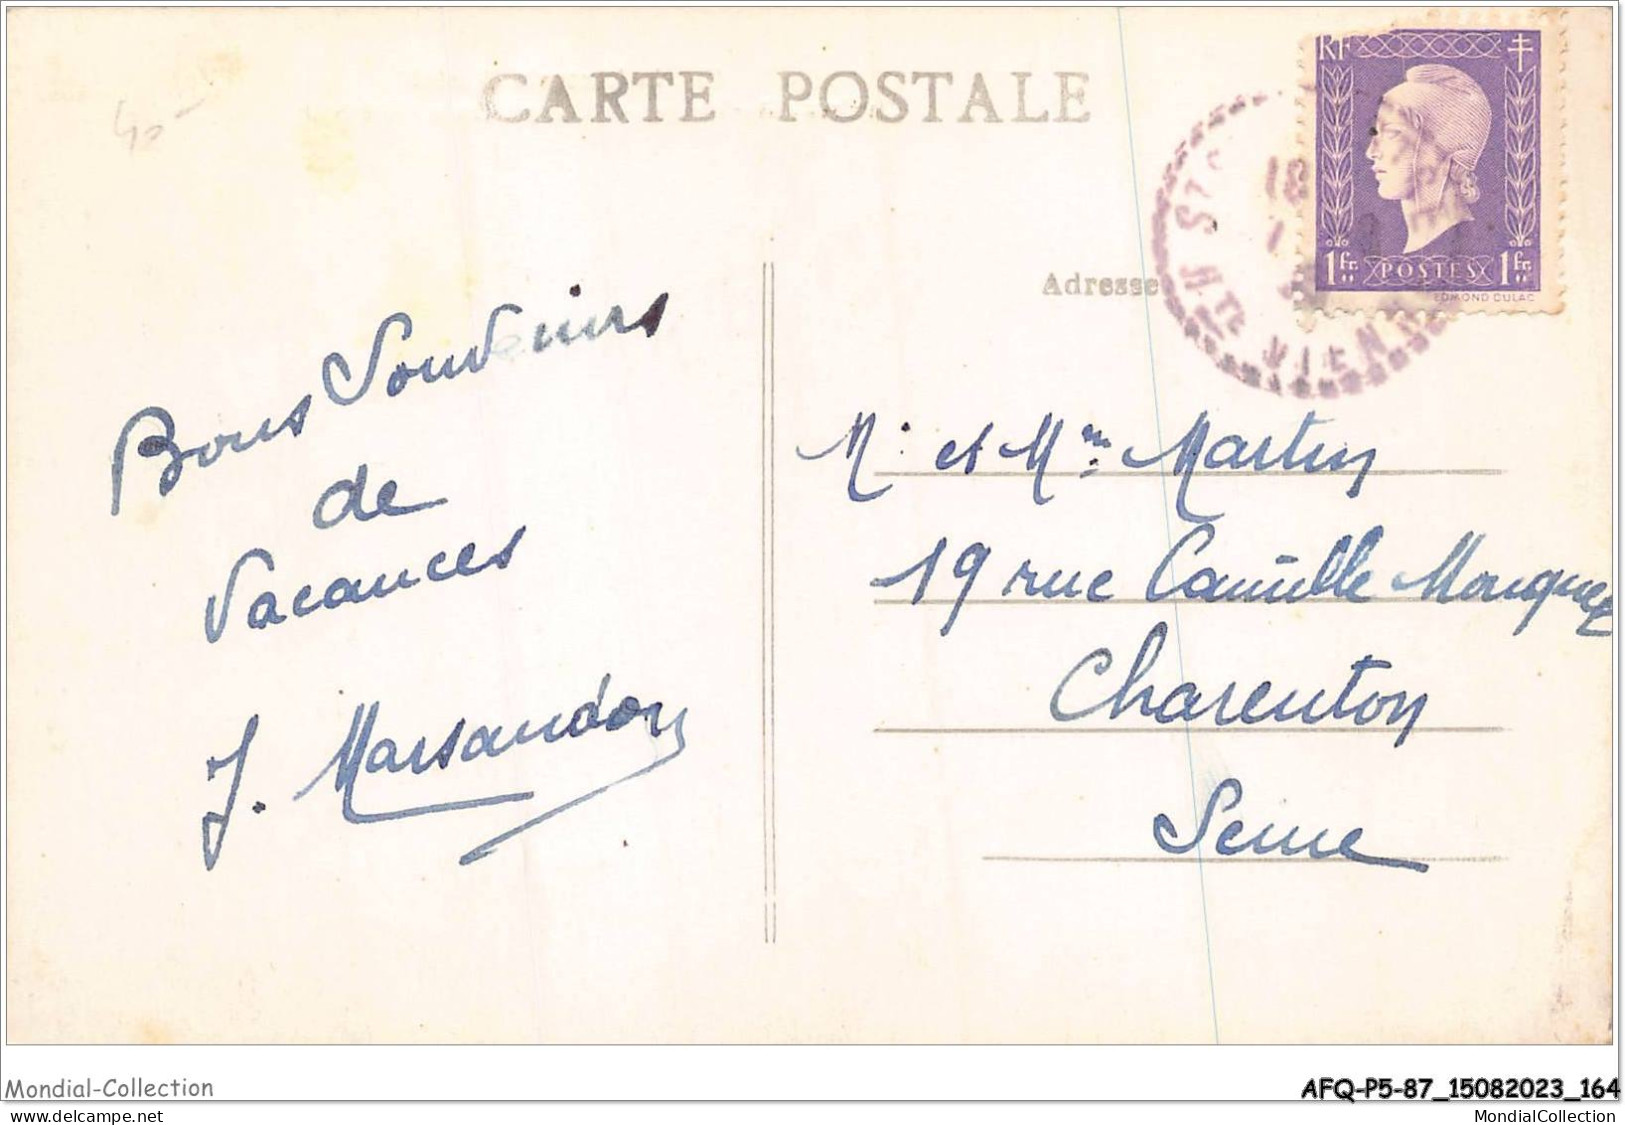 CARTE POSTALE
40-
RF
1 fr.
POSTES
1 fr.
EDMOND DULAC
18
Hte VIENNE
Adresse
Bons Souvenirs
de
Vacances
J. Marsandon
M. et Mme Martin
19 rue Camille Mouquet
Charenton
Seine
Mondial-Collection
AFQ-P5-87_15082023_164
www.delcampe.net
MondialCollection